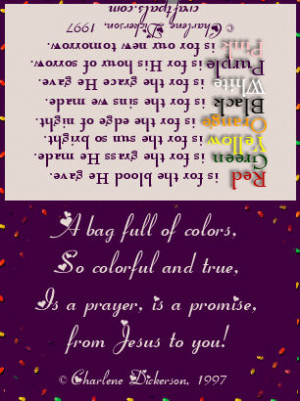 Red is for the blood He gave.
Green is for the grass He made.
Yellow is for the sun so bright.
Orange is for the edge of night.
Black is for the sins we made.
White is for the grace He gave.
Purple is for His hour of sorrow.
Pink is for our new tomorrow.
© Charlene Dickerson, 1997
craftpals.com
A bag full of colors,
So colorful and true,
Is a prayer, is a promise,
from Jesus to you!
© Charlene Dickerson, 1997